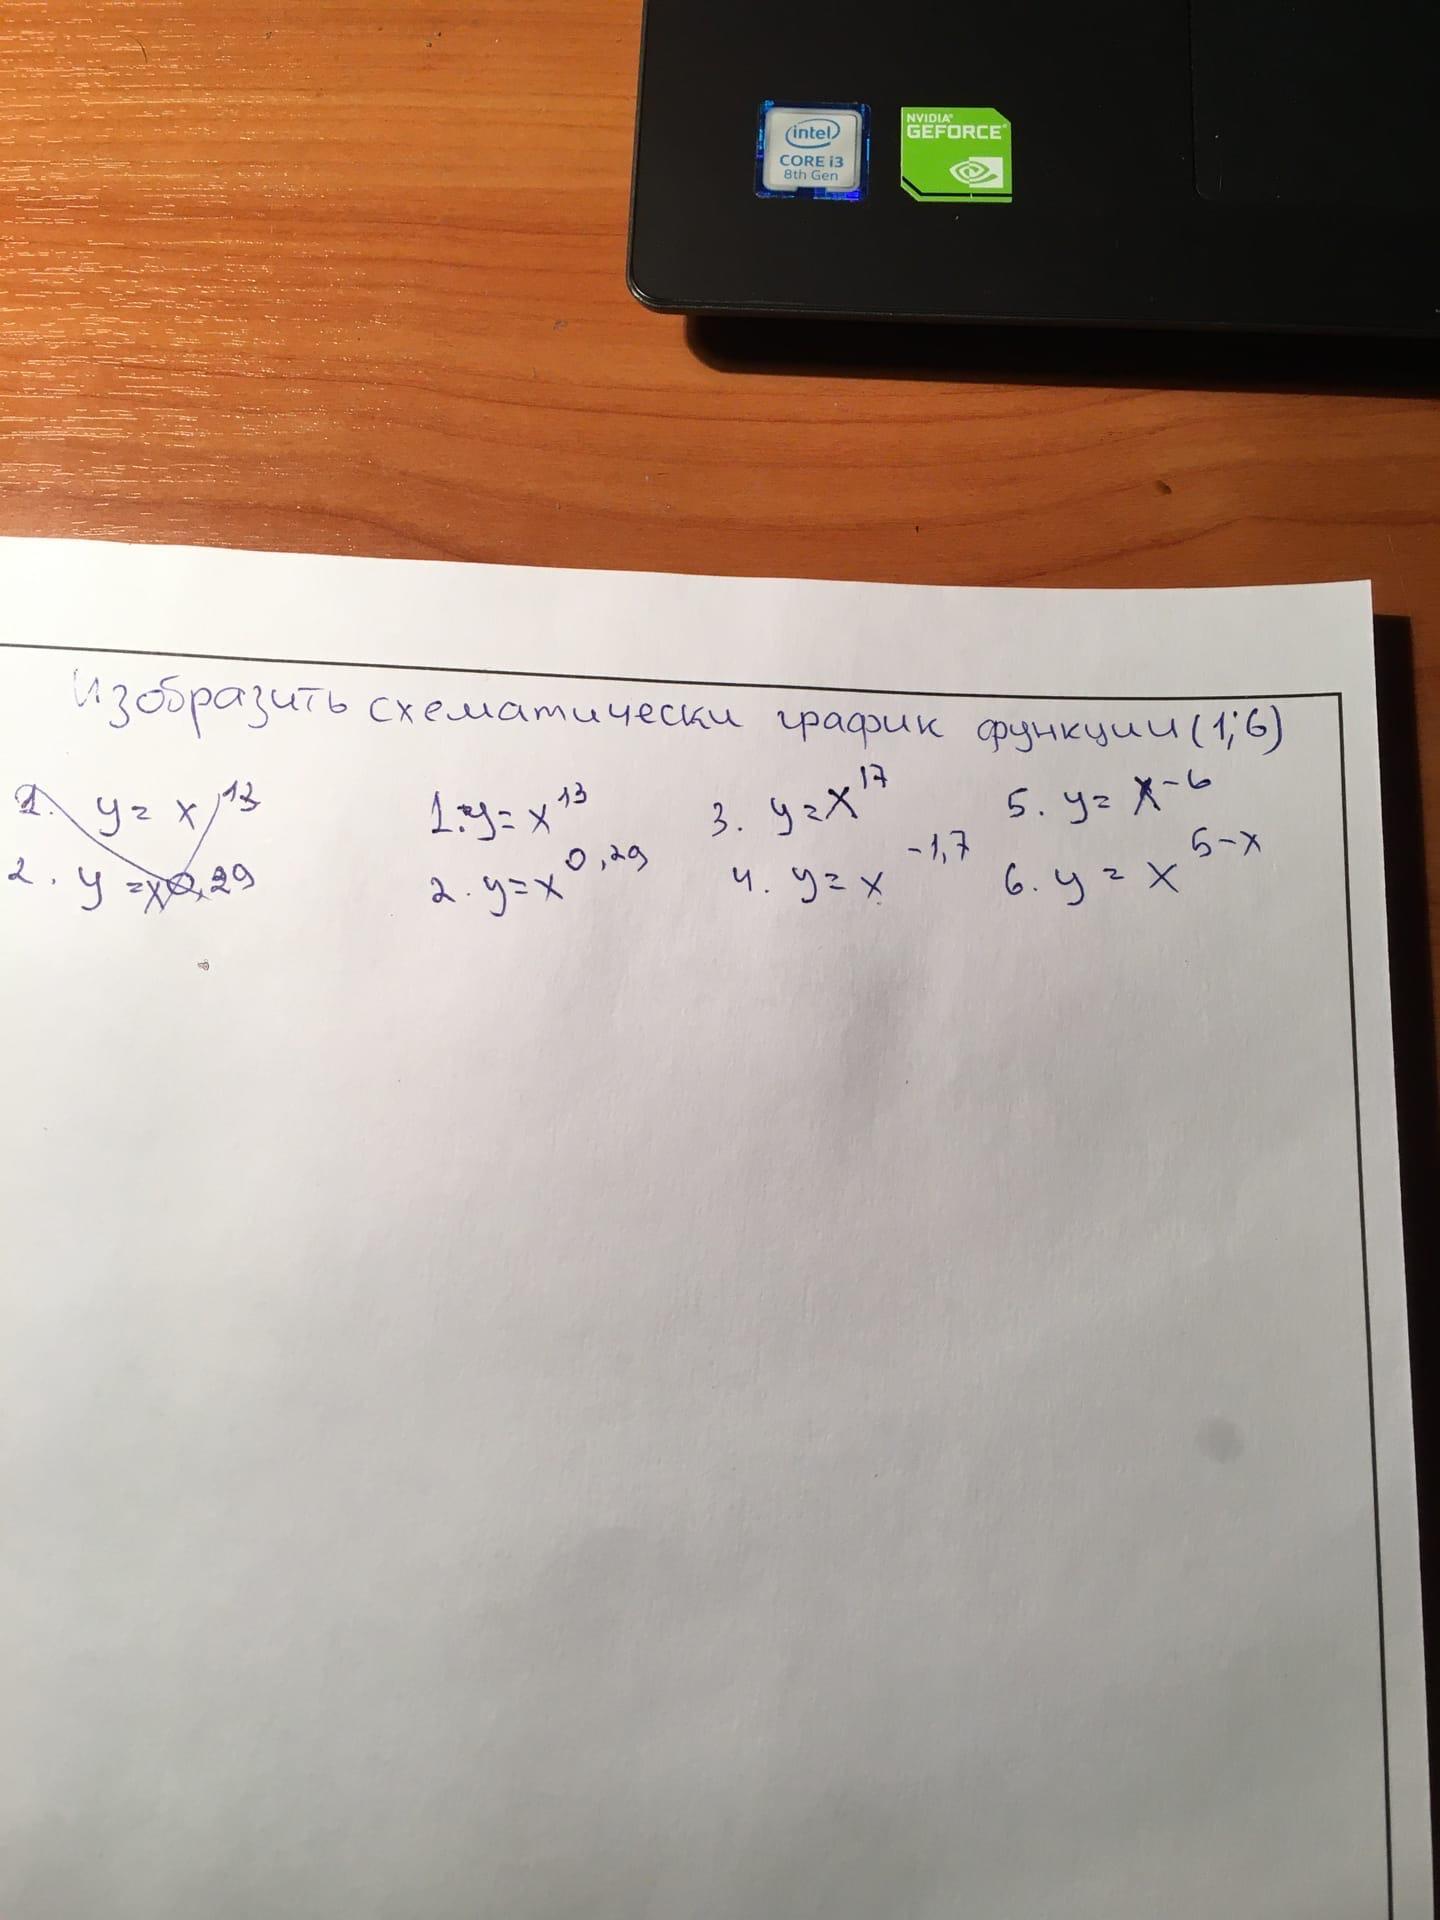 intel
CORE i3
8th Gen
NVIDIA
GEFORCE
Изобразить схематически график функции (1;6)
1. y = x^13
2. y = x^0,29
1. y = x^13
2. y = x^0,29
3. y = x^17
4. y = x^-1,7
5. y = x^-6
6. y = x^5-x